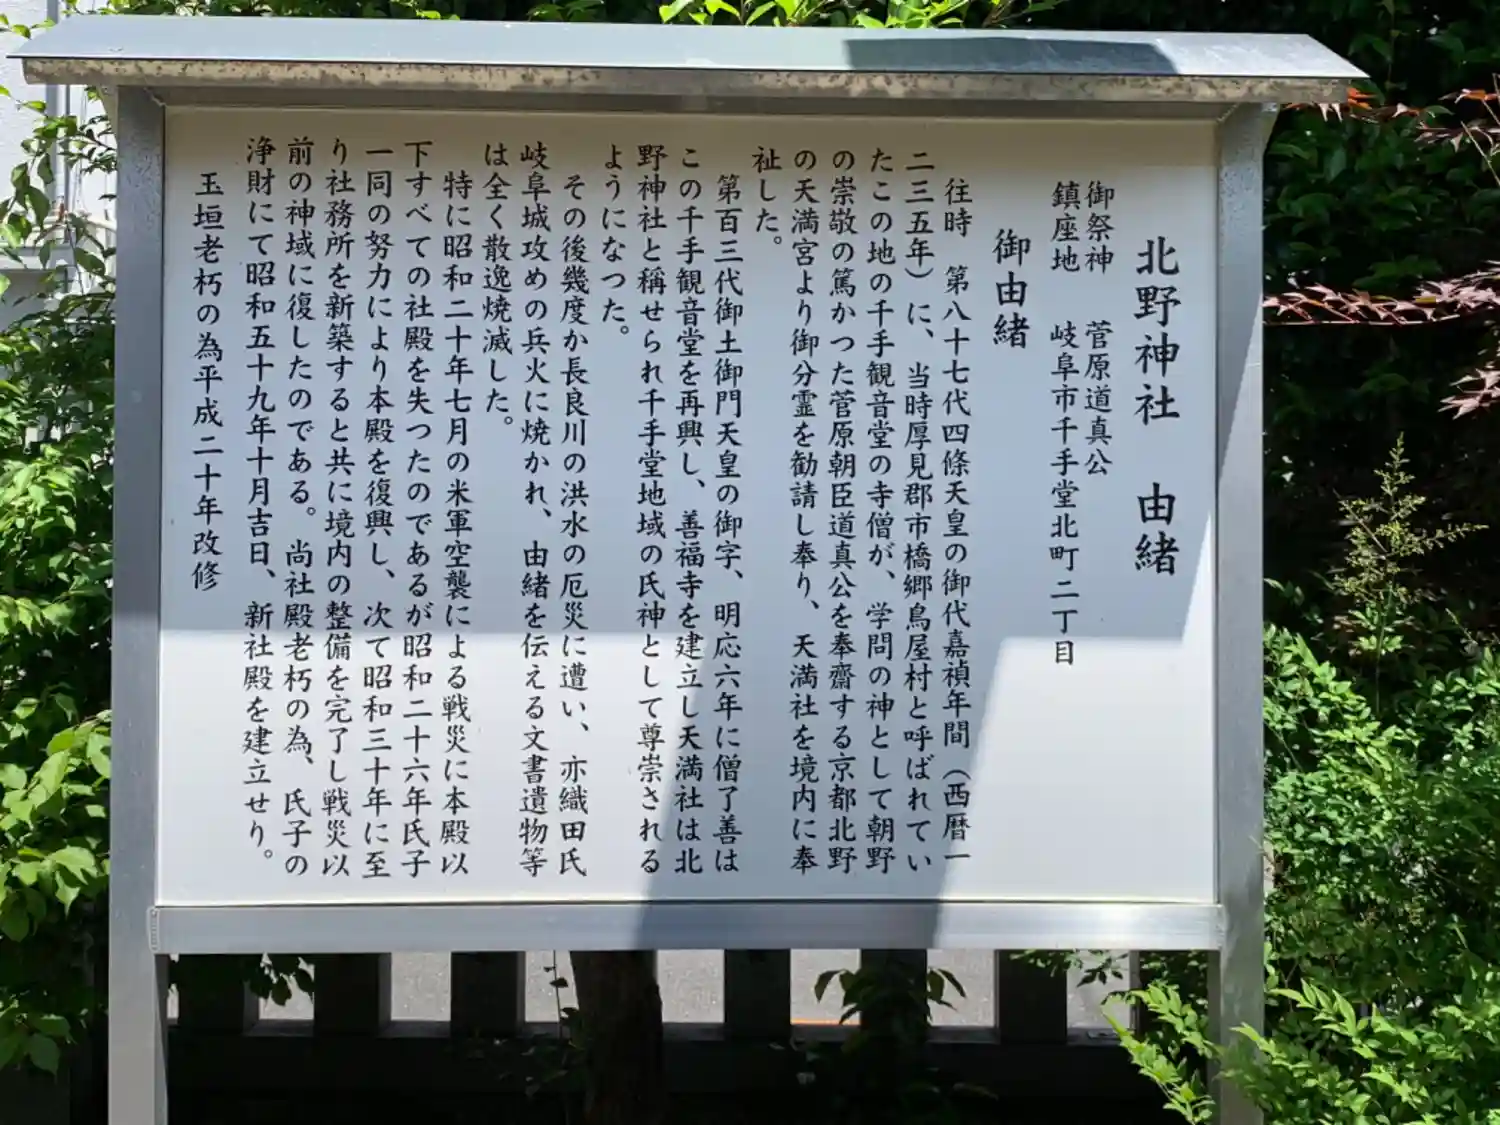 北野神社　由緒
御祭神　菅原道真公
鎮座地　岐阜市千手堂北町二丁目
御由緒
往時　第八十七代四條天皇の御代嘉禎年間（西暦一
二三五年）に、当時厚見郡市橋郷鳥屋村と呼ばれてい
たこの地の千手観音堂の寺僧が、学問の神として朝野
の崇敬の篤かつた菅原朝臣道真公を奉齋する京都北野
の天満宮より御分霊を勧請し奉り、天満社を境内に奉
祉した。
第百三代御土御門天皇の御字、明応六年に僧了善は
この千手観音堂を再興し、善福寺を建立し天満社は北
野神社と稱せられ千手堂地域の氏神として尊崇される
ようになつた。
その後幾度か長良川の洪水の厄災に遭い、亦織田氏
岐阜城攻めの兵火に焼かれ、由緒を伝える文書遺物等
は全く散逸焼滅した。
特に昭和二十年七月の米軍空襲による戦災に本殿以
下すべての社殿を失つたのであるが昭和二十六年氏子
一同の努力により本殿を復興し、次て昭和三十年に至
り社務所を新築すると共に境内の整備を完了し戦災以
前の神域に復したのである。尚社殿老朽の為、氏子の
浄財にて昭和五十九年十月吉日、新社殿を建立せり。
玉垣老朽の為平成二十年改修